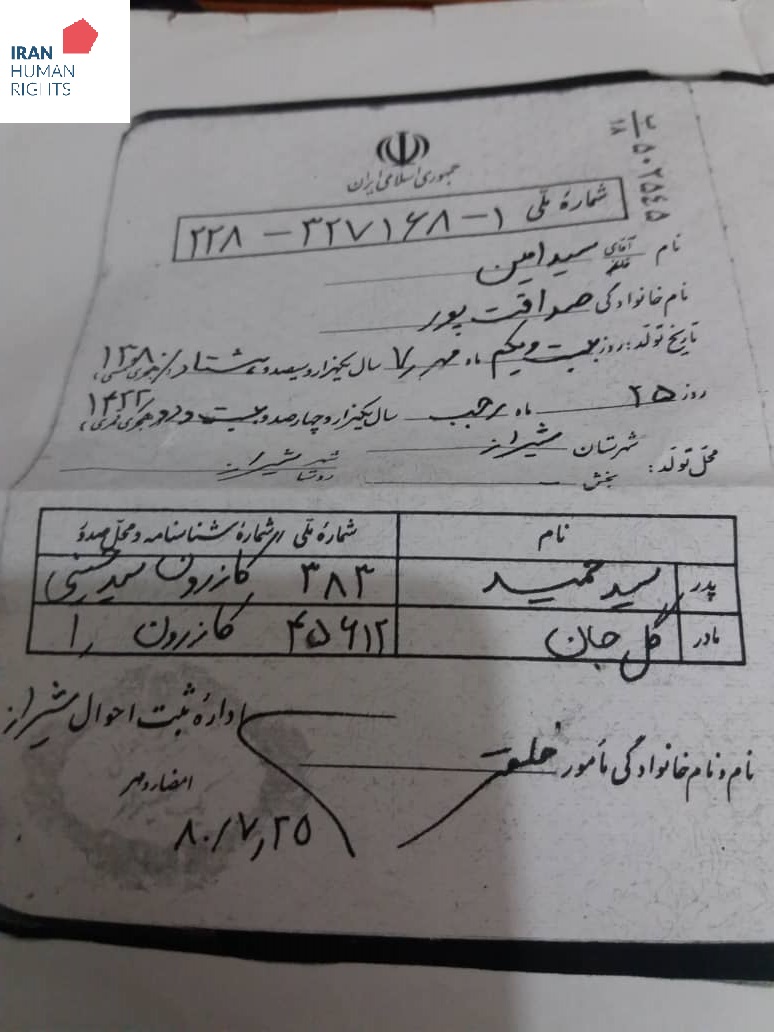 IRAN
HUMAN
RIGHTS
۵۰۲۵۴۵
۱۸
جمهوری اسلامی ایران
شمارهٔ ملی ۱ - ۳۲۷۱۶۸ - ۲۲۸
نام آقای سید امین
نام خانوادگی صداقت پور
تاریخ تولد: روز بیست و یکم ماه مهر ۷ سال یکهزار و سیصد و هشتاد ۱۳۸۰ هجری شمسی
روز ۲۵ ماه رجب سال یکهزار و چهارصد و بیست و دو ۱۴۲۲ هجری قمری
محل تولد: شهرستان شیراز شهر شیراز
بخش روستا
نام شمارهٔ ملی شمارهٔ شناسنامه و محل صدور
پدر سید حمید ۳۸۳ کازرون
مادر گل جان ۴۵۶۱۲ کازرون ۱
ادارهٔ ثبت احوال شیراز
نام و نام خانوادگی مأمور
امضاء و مهر
۸۰/۷/۲۵